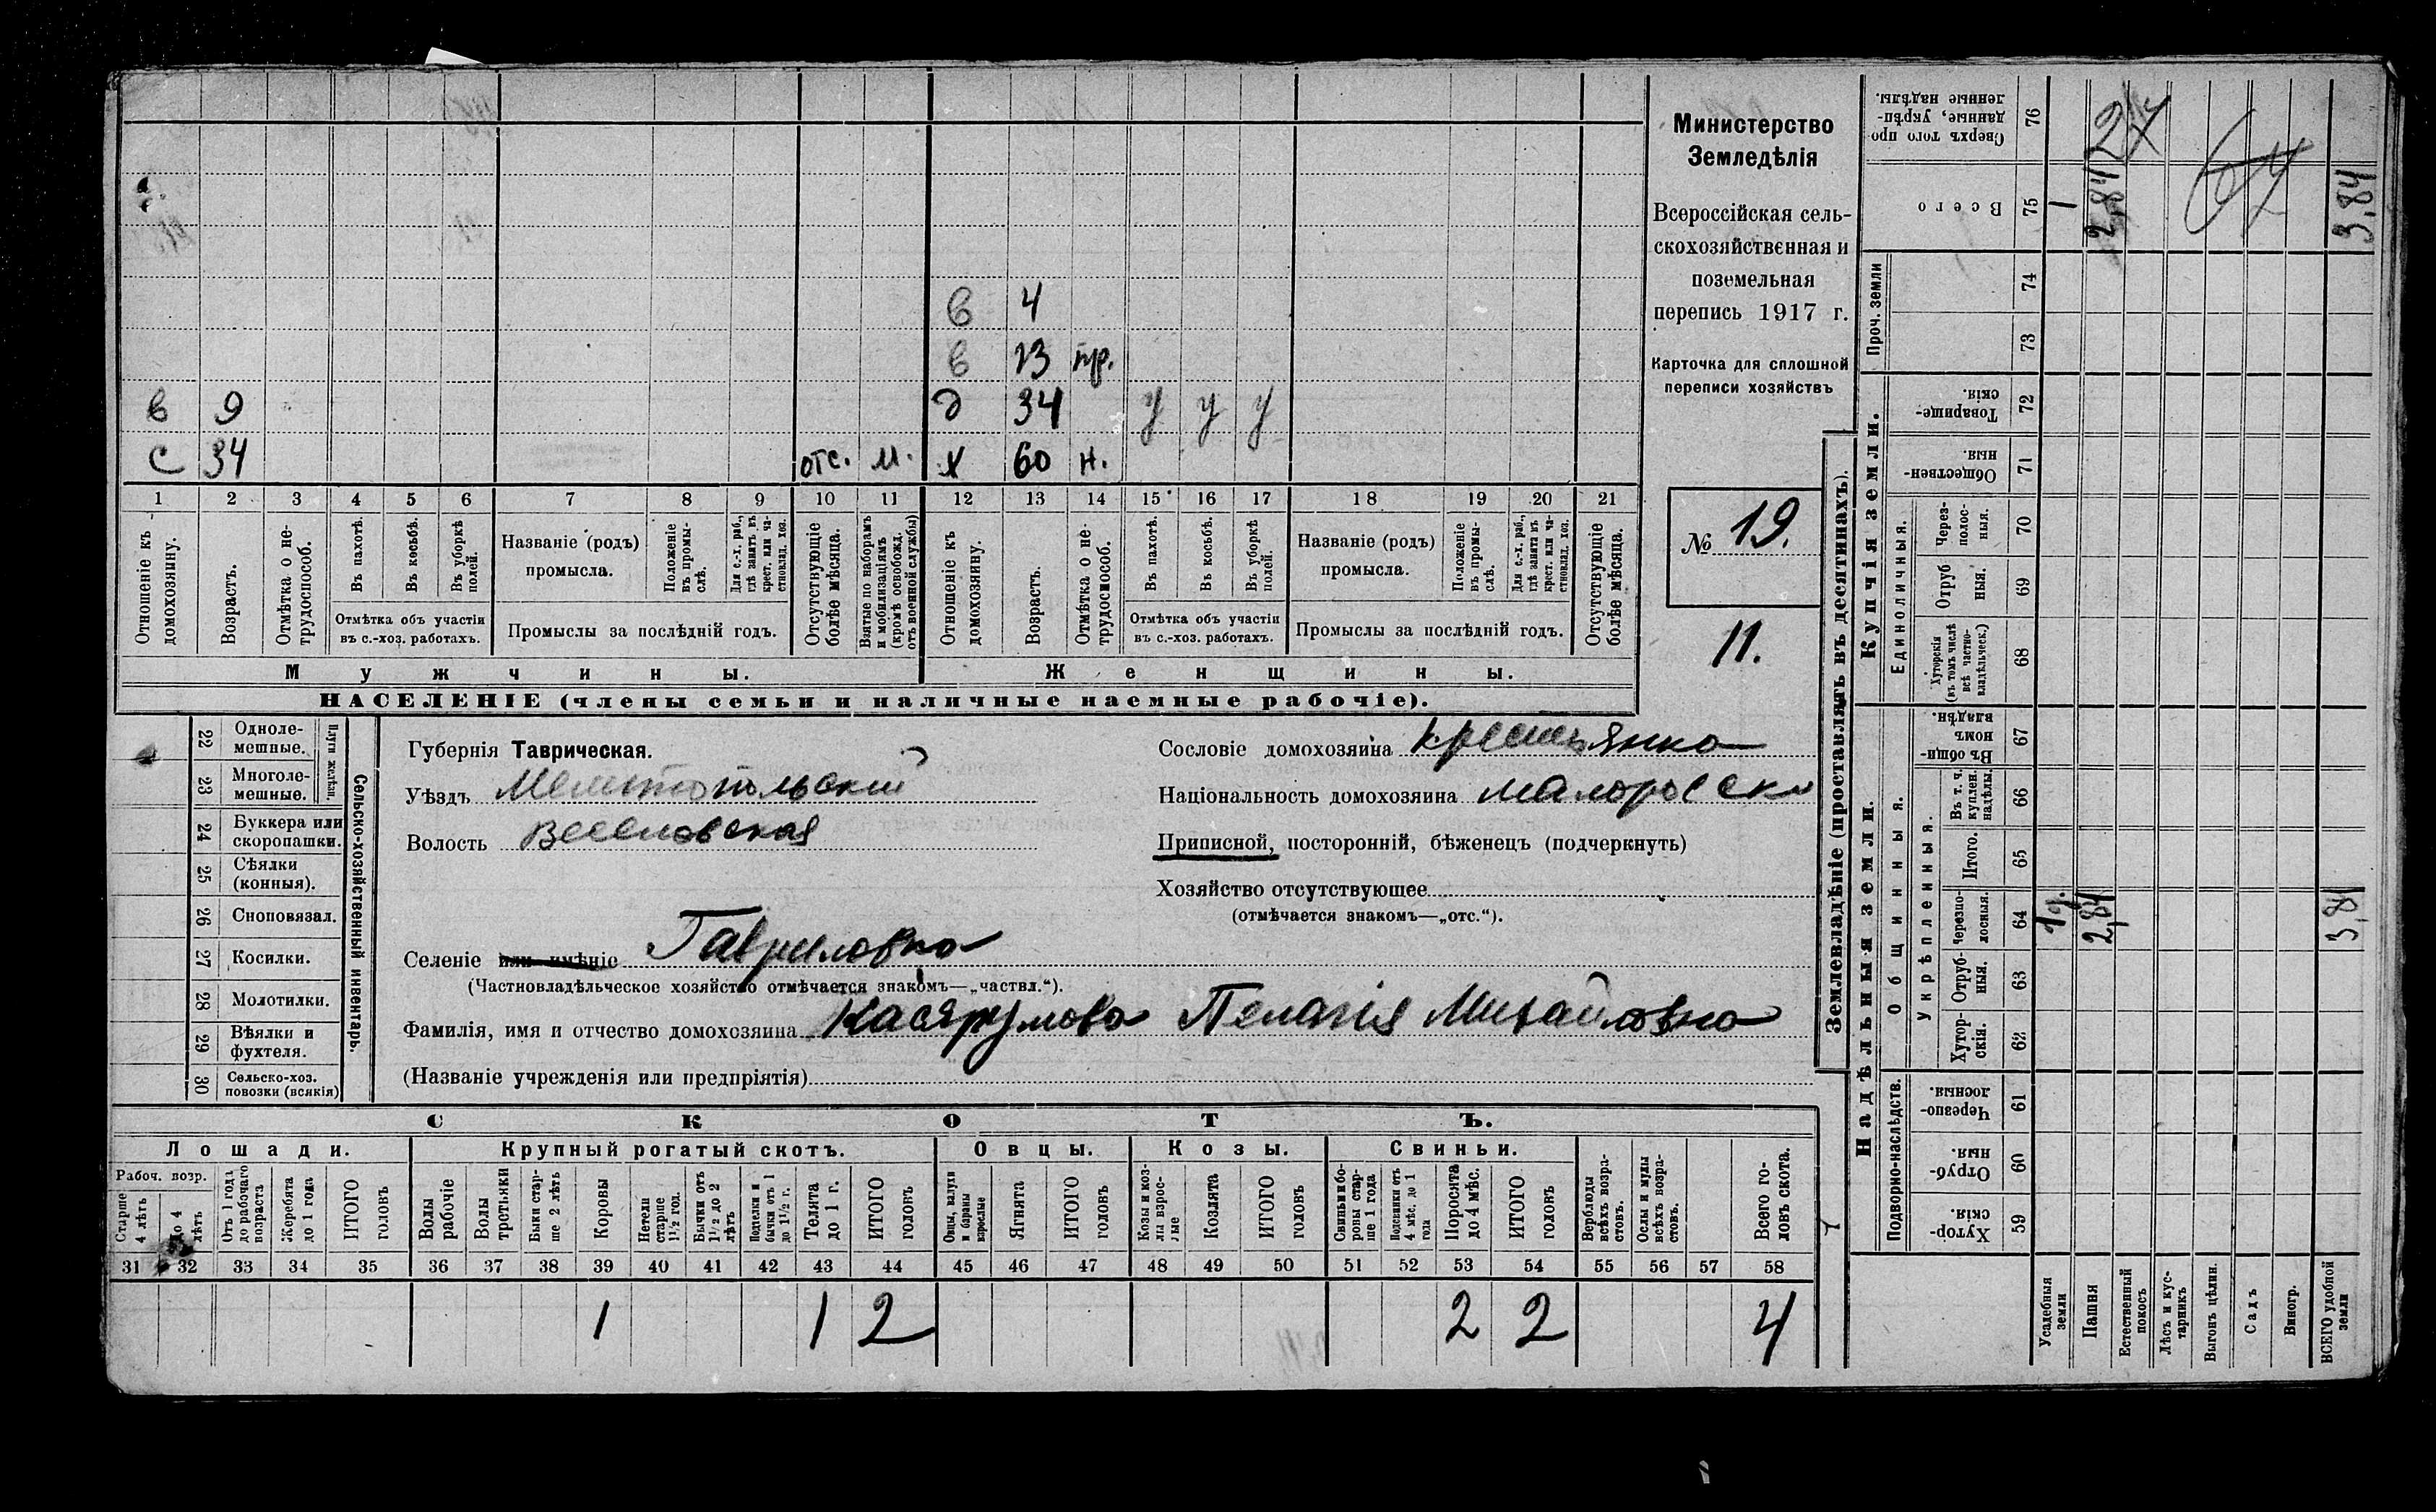 Министерство
Земледѣлія
Всероссійская сель-
скохозяйственная и
поземельная
перепись 1917 г.
Карточка для сплошной
переписи хозяйствъ
№ 19.
11.
в 4
в 13 пр.
в 9 д 34 у у у
с 34 отс. м. х 60 н.
1 2 3 4 5 6 7 8 9 10 11 12 13 14 15 16 17 18 19 20 21
Отношеніе къ домохозяину.
Возрастъ.
Отмѣтка о не-трудоспособ.
Въ пахотѣ.
Въ косьбѣ.
Въ уборкѣ полей.
Отмѣтка объ участіи
въ с.-хоз. работахъ.
Названіе (родъ)
промысла.
Положеніе въ промы-слѣ.
Для с.-х. раб., гдѣ занятъ въ крест. или ча-стновлад. хоз.
Промыслы за послѣдній годъ.
Отсутствующіе болѣе мѣсяца.
Взятые по наборамъ и мобилизаціямъ (кромѣ освобожд. отъ военной службы)
Отношеніе къ домохозяину.
Возрастъ.
Отмѣтка о не-трудоспособ.
Въ пахотѣ.
Въ косьбѣ.
Въ уборкѣ полей.
Отмѣтка объ участіи
въ с.-хоз. работахъ.
Названіе (родъ)
промысла.
Положеніе въ промы-слѣ.
Для с.-х. раб., гдѣ занята въ крест. или ча-стновлад. хоз.
Промыслы за послѣдній годъ.
Отсутствующіе болѣе мѣсяца.
Мужчины. Женщины.
НАСЕЛЕНІЕ (члены семьи и наличные наемные рабочіе).
Сельско-хозяйственный инвентарь.
Плуги желѣзн.
22 Одноле-мешные.
23 Многоле-мешные.
24 Буккера или скоропашки.
25 Сѣялки (конныя).
26 Сноповязал.
27 Косилки.
28 Молотилки.
29 Вѣялки и фухтеля.
30 Сельско-хоз. повозки (всякія)
Губернія Таврическая.
Уѣздъ Мелитопольскій
Волость Веселовская
Селеніе или имѣніе Гавриловка
(Частновладѣльческое хозяйство отмѣчается знакомъ—„частвл.“).
Фамилія, имя и отчество домохозяина Пелагія Михайловна
(Названіе учрежденія или предпріятія)
Сословіе домохозяина крестьянка
Національность домохозяина малоросска
Приписной, посторонній, бѣженецъ (подчеркнуть)
Хозяйство отсутствующее
(отмѣчается знакомъ—„отс.“).
СКОТЪ.
Лошади. Крупный рогатый скотъ. Овцы. Козы. Свиньи.
Рабоч. возр.
Старше 4 лѣтъ
до 4 лѣтъ
Отъ 1 года до рабочаго возраста
Жеребята до 1 года
ИТОГО головъ
Волы рабочіе
Волы третьяки
Быки стар-ше 2 лѣтъ
Коровы
Нетели старше 1½ год.
Бычки отъ 1½ до 2 лѣтъ
Подтелки и бычки отъ 1 до 1½ г.
Телята до 1 г.
ИТОГО головъ
Овцы, валухи и бараны взрослые
Ягнята
ИТОГО головъ
Козы и коз-лы взрос-лые
Козлята
ИТОГО головъ
Свиньи и бо-ровы стар-ше 1 года
Подсвинки отъ 4 мѣс. до 1 года
Поросята до 4 мѣс.
ИТОГО головъ
Верблюды всѣхъ возра-стовъ.
Ослы и мулы всѣхъ возра-стовъ.
Всего го-ловъ скота.
31 32 33 34 35 36 37 38 39 40 41 42 43 44 45 46 47 48 49 50 51 52 53 54 55 56 57 58
1 1 2 2 2 4
Землевладѣніе (проставлять въ десятинахъ).
Надѣльныя земли. Купчія земли. Проч. земли
Подворно-наслѣдств.
Общинныя.
Укрѣпленныя.
Единоличныя.
Хутор-скія. 59
Отруб-ныя. 60
Черезпо-лосныя. 61
Хутор-скія. 62
Отруб-ныя. 63
Черезпо-лосныя. 64
Итого. 65
Въ т. ч. куплен. надѣлы. 66
Въ общи-номъ владѣн. 67
Хуторскія (въ томъ числѣ всѣ частно-владѣльческ.) 68
Отрубныя. 69
Через-полос-ныя. 70
Обществен-ныя. 71
Товарище-скія. 72
73
74
Всего 75
Сверхъ того про-данные, укрѣп-ленные надѣлы. 76
Усадебныя земли 1
Пашня 2,84 2,84
Естественный покосъ
Лѣсъ и кус-тарникъ
Выгонъ цѣлин.
Садъ
Виногр.
ВСЕГО удобной земли 3,84 3,84
27